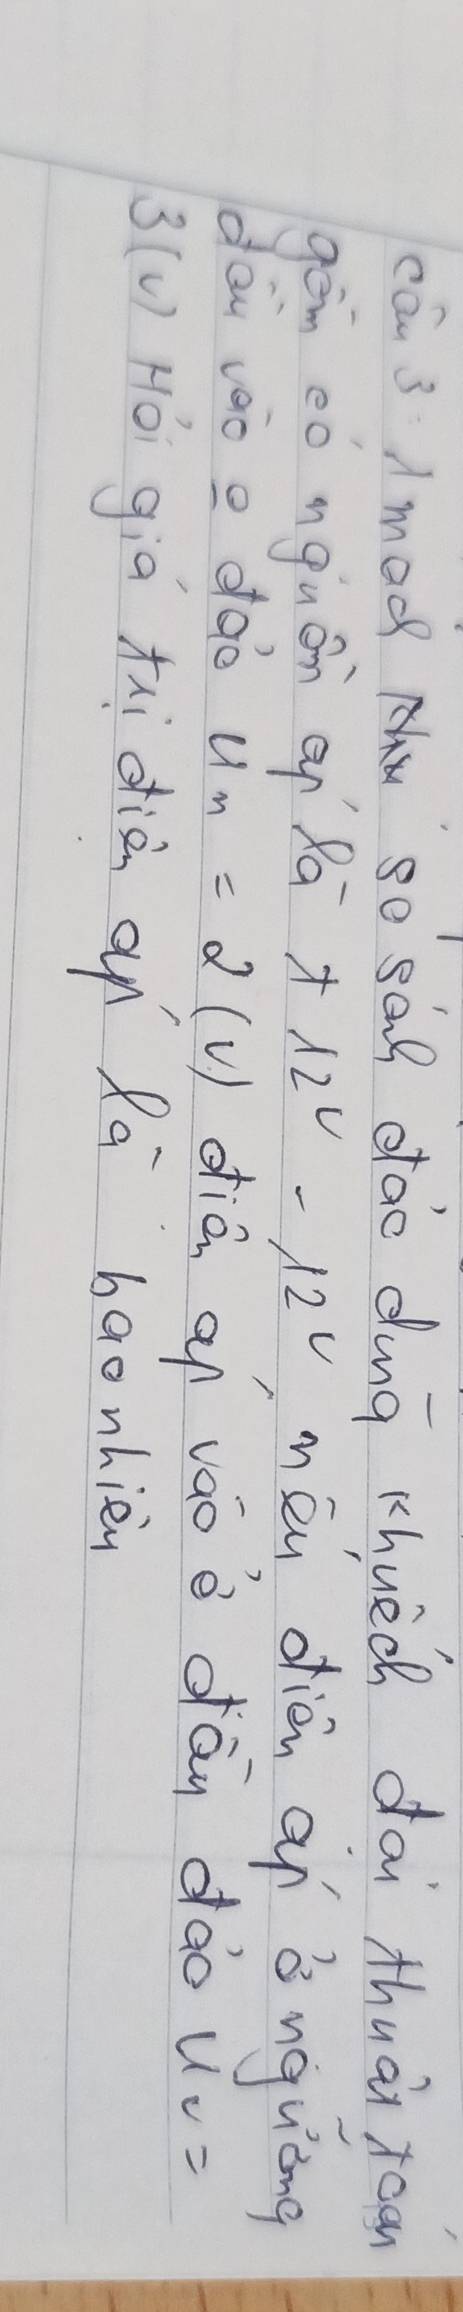 câu 3: 1 mạch so sánh đảo dùng khuếch đại thuật toán
gồm có nguồn áp là + 12V - 12V nếu điện áp ở ngưỡng
đầu vào o đảo Un = 2(V) điện áp vào ở đầu đảo Uv =
3(V) Hỏi giá trị điện áp là baonhiêu